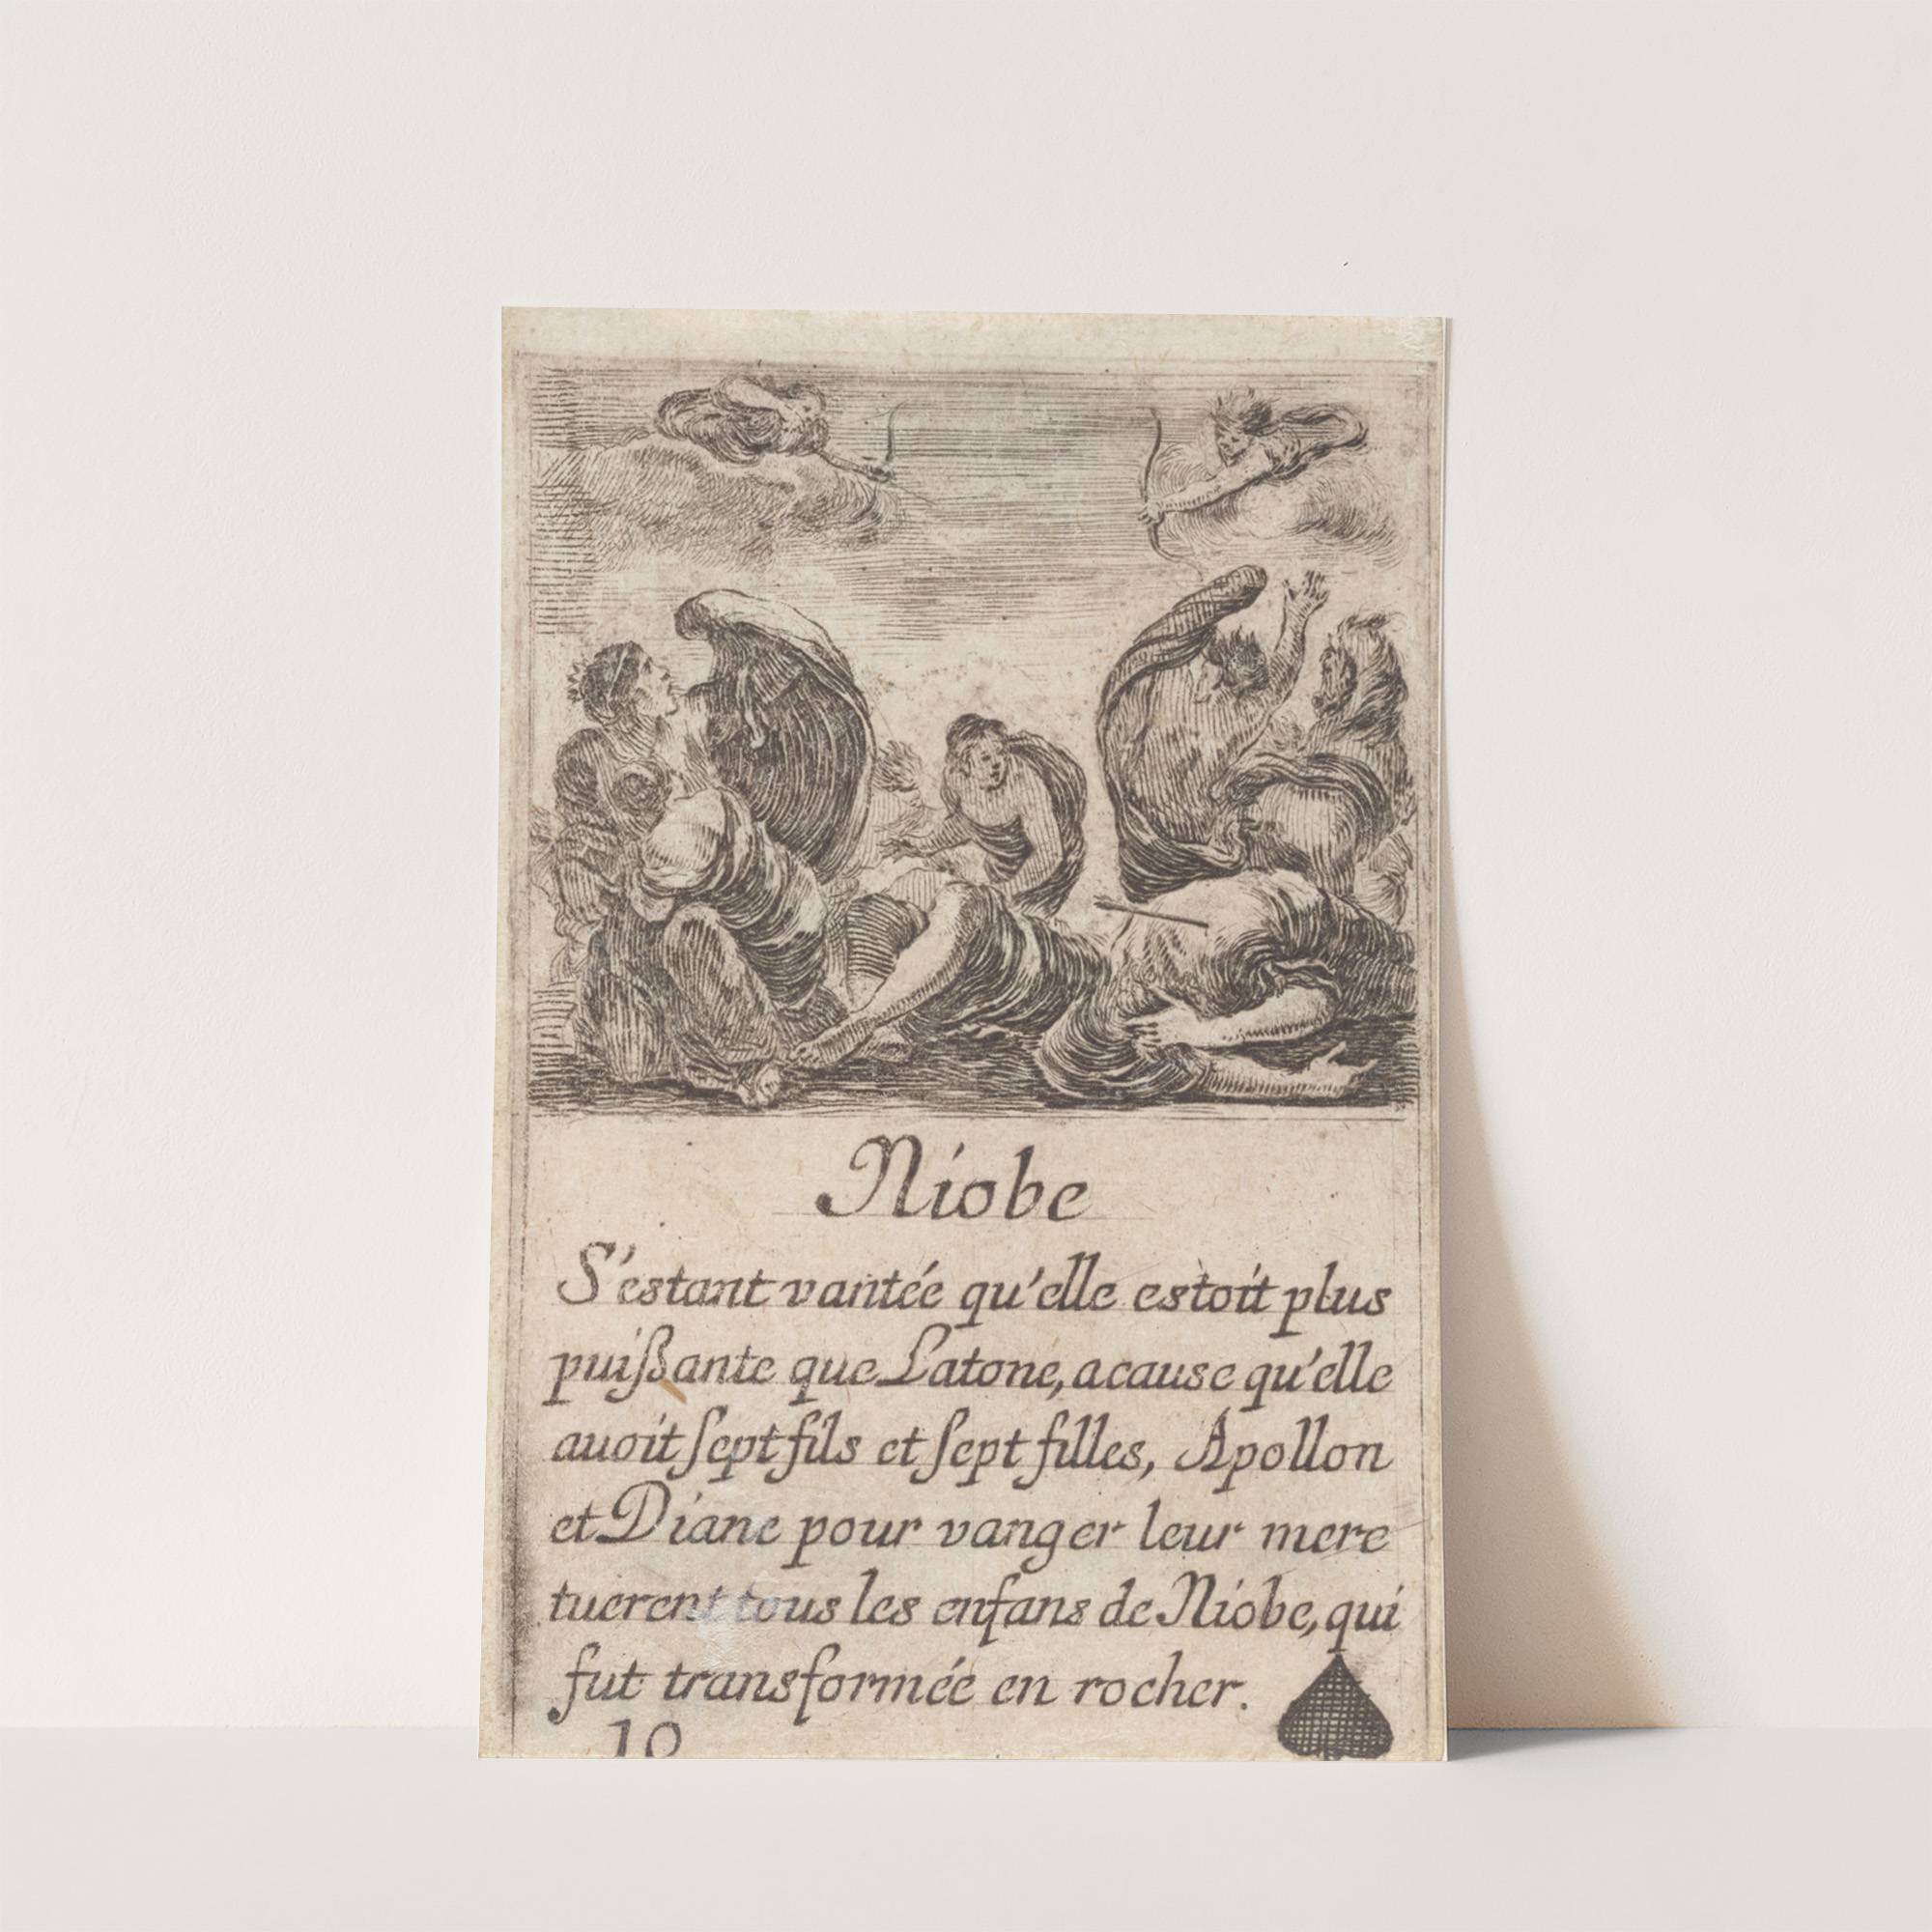 Niobe
S'estant vantée qu'elle estoit plus
puißante que Latone, acause qu'elle
auoit ſept fils et ſept filles, Apollon
et Diane pour vanger leur mere
tuerent tous les enfans de Niobe, qui
fut transformée en rocher.
10